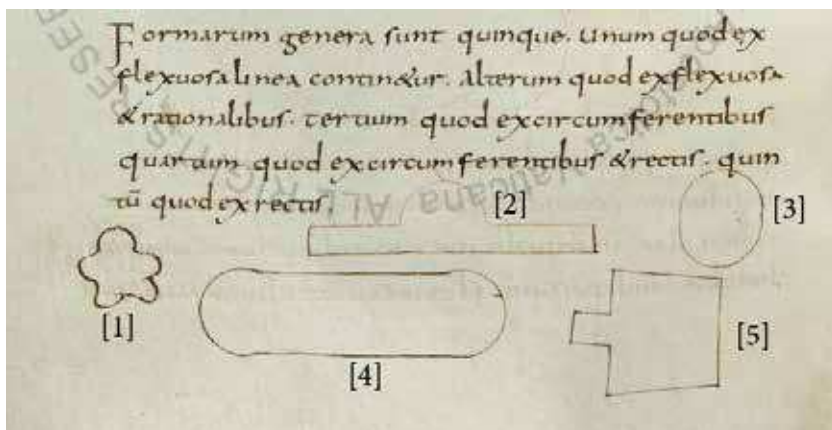 Formarum genera sunt quinque. Unum quod ex
flexuosa linea contin&ur. alterum quod exflexuosa
& rationalibus. tertium quod excircumferentibus
quartum quod excircumferentibus & rectis. quin
tū quod ex rectis.
[1]
[2]
[3]
[4]
[5]